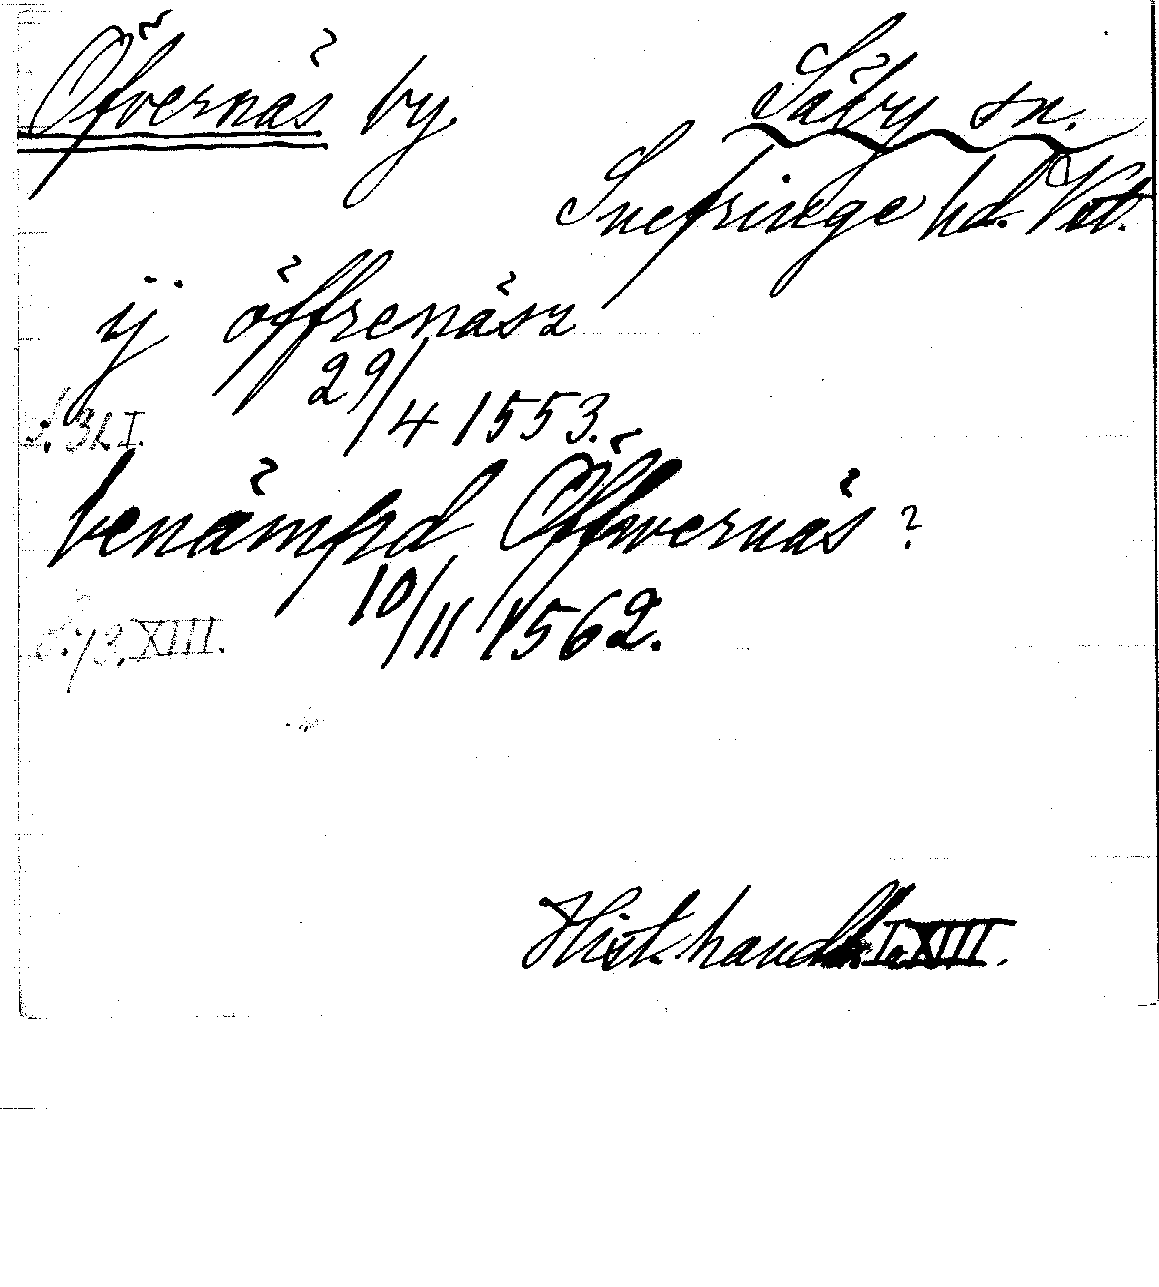 Öfvernäs by. Säby sn.
Snefringe hd. Vstl.
ij öffrenäsz
29/4 1553.
s. 31. I.
benämpd Öffwernäs?
10/11 1562.
s. 73. XIII.
Hist. handl. I. XIII.